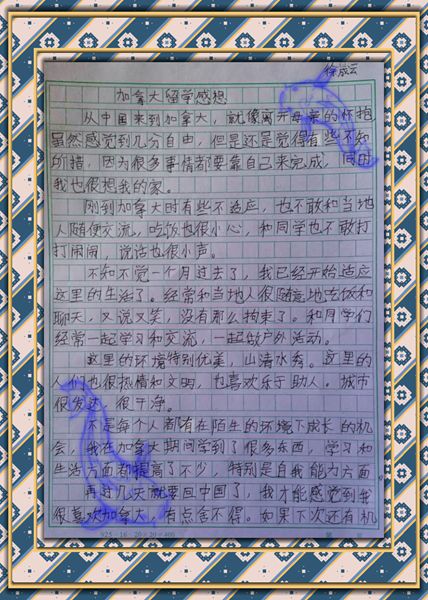 徐成云
加拿大留学感想
从中国来到加拿大，就像离开母亲的怀抱
虽然感觉到几分自由，但是还是觉得有些不知
所措，因为很多事情都要靠自己来完成，同时
我也很想我的家。
刚到加拿大时有些不适应，也不敢和当地
人随便交流，吃饭也很小心，和同学也不敢打
打闹闹，说话也很小声。
不知不觉一个月过去了，我已经开始适应
这里的生活了。经常和当地人很随意地吃饭和
聊天，又说又笑，没有那么拘束了。和同学们
经常一起学习和交流，一起做户外活动。
这里的环境特别优美，山清水秀。这里的
人们也很热情和文明，也喜欢乐于助人。城市
很发达，很干净。
不是每个人都有在陌生的环境下成长的机
会，我在加拿大期间学到了很多东西，学习和
生活方面都提高了不少，特别是自我能力方面。
再过几天就要回中国了，我才能感觉到我
很喜欢加拿大，有点舍不得。如果下次还有机